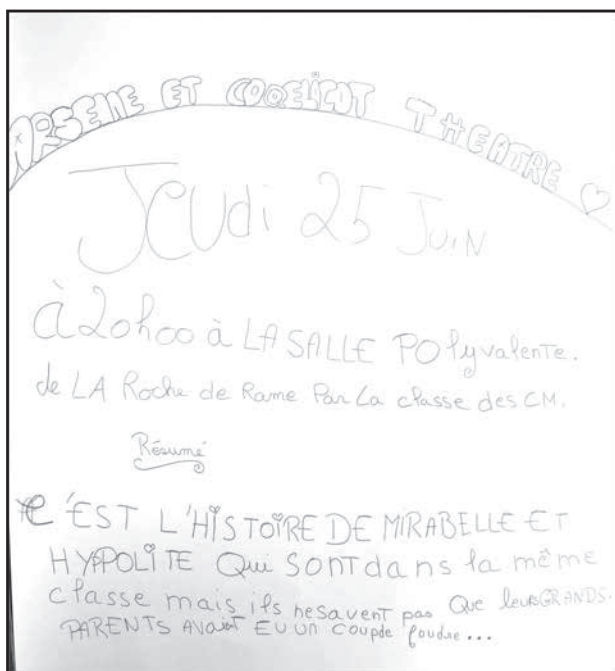 ARSENE ET COQELICOT THEATRE
Jeudi 25 Juin
à 20h00 à LA SALLE POlyvalente.
de LA Roche de Rame Par La classe des CM.
Résumé
C'EST L'HISTOIRE DE MIRABELLE ET
HYPPOLITE Qui SONT dans la même
classe mais ils ne savent pas Que leurs GRANDS-
PARENTS AVait EU UN coup de foudre...